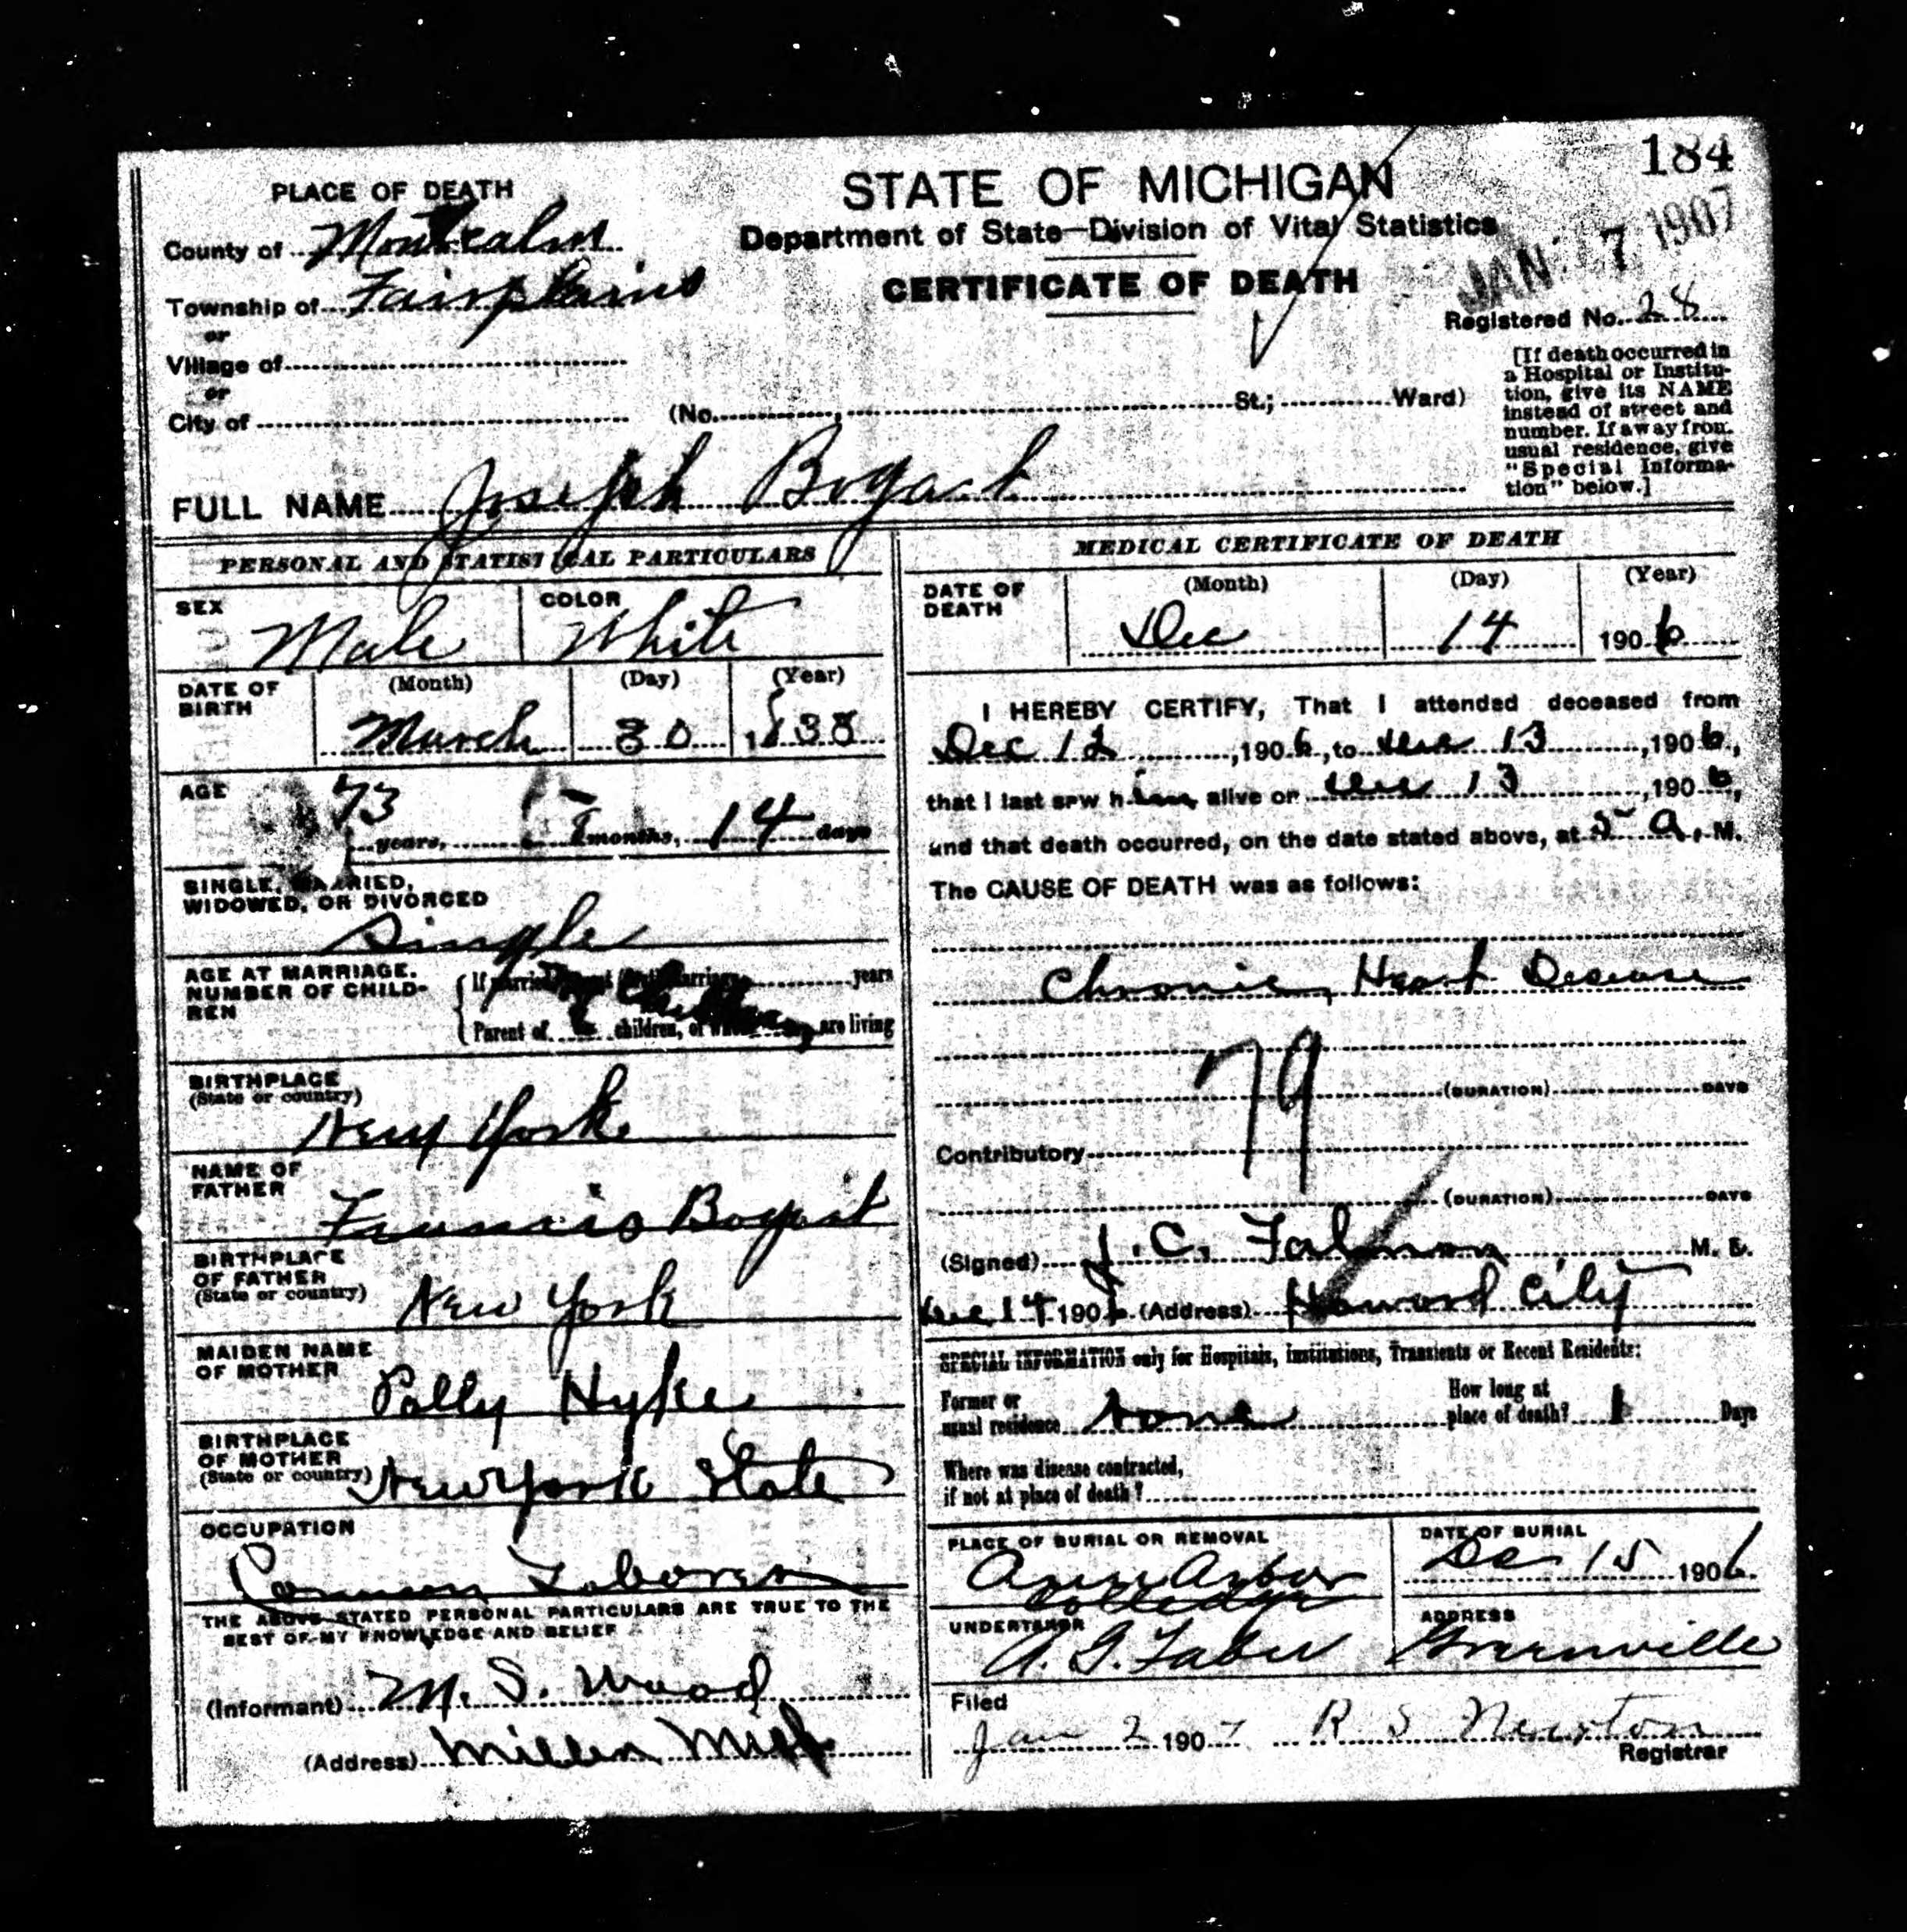 184
PLACE OF DEATH
STATE OF MICHIGAN
County of Montcalm
Department of State—Division of Vital Statistics
JAN 7 1907
Township of Fairplains
CERTIFICATE OF DEATH
Registered No. 28
or
Village of
or
City of (No. St.; Ward)
[If death occurred in
a Hospital or Institu-
tion, give its NAME
instead of street and
number. If away from
usual residence, give
"Special Informa-
tion" below.]
FULL NAME Joseph Bogart
PERSONAL AND STATISTICAL PARTICULARS
SEX Male
COLOR White
DATE OF BIRTH
(Month) (Day) (Year)
March 30
AGE
73 years, months, 14 days
SINGLE, MARRIED,
WIDOWED, OR DIVORCED
Single
AGE AT MARRIAGE,
NUMBER OF CHILD-
REN
If married, years
Parent of children, of whom are living
BIRTHPLACE
(State or country)
New York
NAME OF
FATHER
Francis Bogart
BIRTHPLACE
OF FATHER
(State or country)
New York
MAIDEN NAME
OF MOTHER
Polly Hyke
BIRTHPLACE
OF MOTHER
(State or country)
New York State
OCCUPATION
Common Laborer
THE ABOVE STATED PERSONAL PARTICULARS ARE TRUE TO THE
BEST OF MY KNOWLEDGE AND BELIEF
(Informant) M. S. Wood
(Address) Mich
MEDICAL CERTIFICATE OF DEATH
DATE OF
DEATH
(Month) (Day) (Year)
Dec 14 1906
I HEREBY CERTIFY, That I attended deceased from
Dec 12, 1906, to Dec 13, 1906,
that I last saw him alive on Dec 13, 1906,
and that death occurred, on the date stated above, at 5 a. M.
The CAUSE OF DEATH was as follows:
Chronic Heart Disease
79
(DURATION) DAYS
Contributory
(DURATION) DAYS
(Signed) J. C. M. D.
Dec 14 1906 (Address) Howard City
SPECIAL INFORMATION only for Hospitals, Institutions, Transients or Recent Residents:
Former or
usual residence
How long at
place of death? Days
Where was disease contracted,
if not at place of death?
PLACE OF BURIAL OR REMOVAL
Ann Arbor
Colledge
DATE OF BURIAL
Dec 15 1906
UNDERTAKER
A. G. Faber
ADDRESS
Greenville
Filed
Jan 2 1907 R S Newton
Registrar